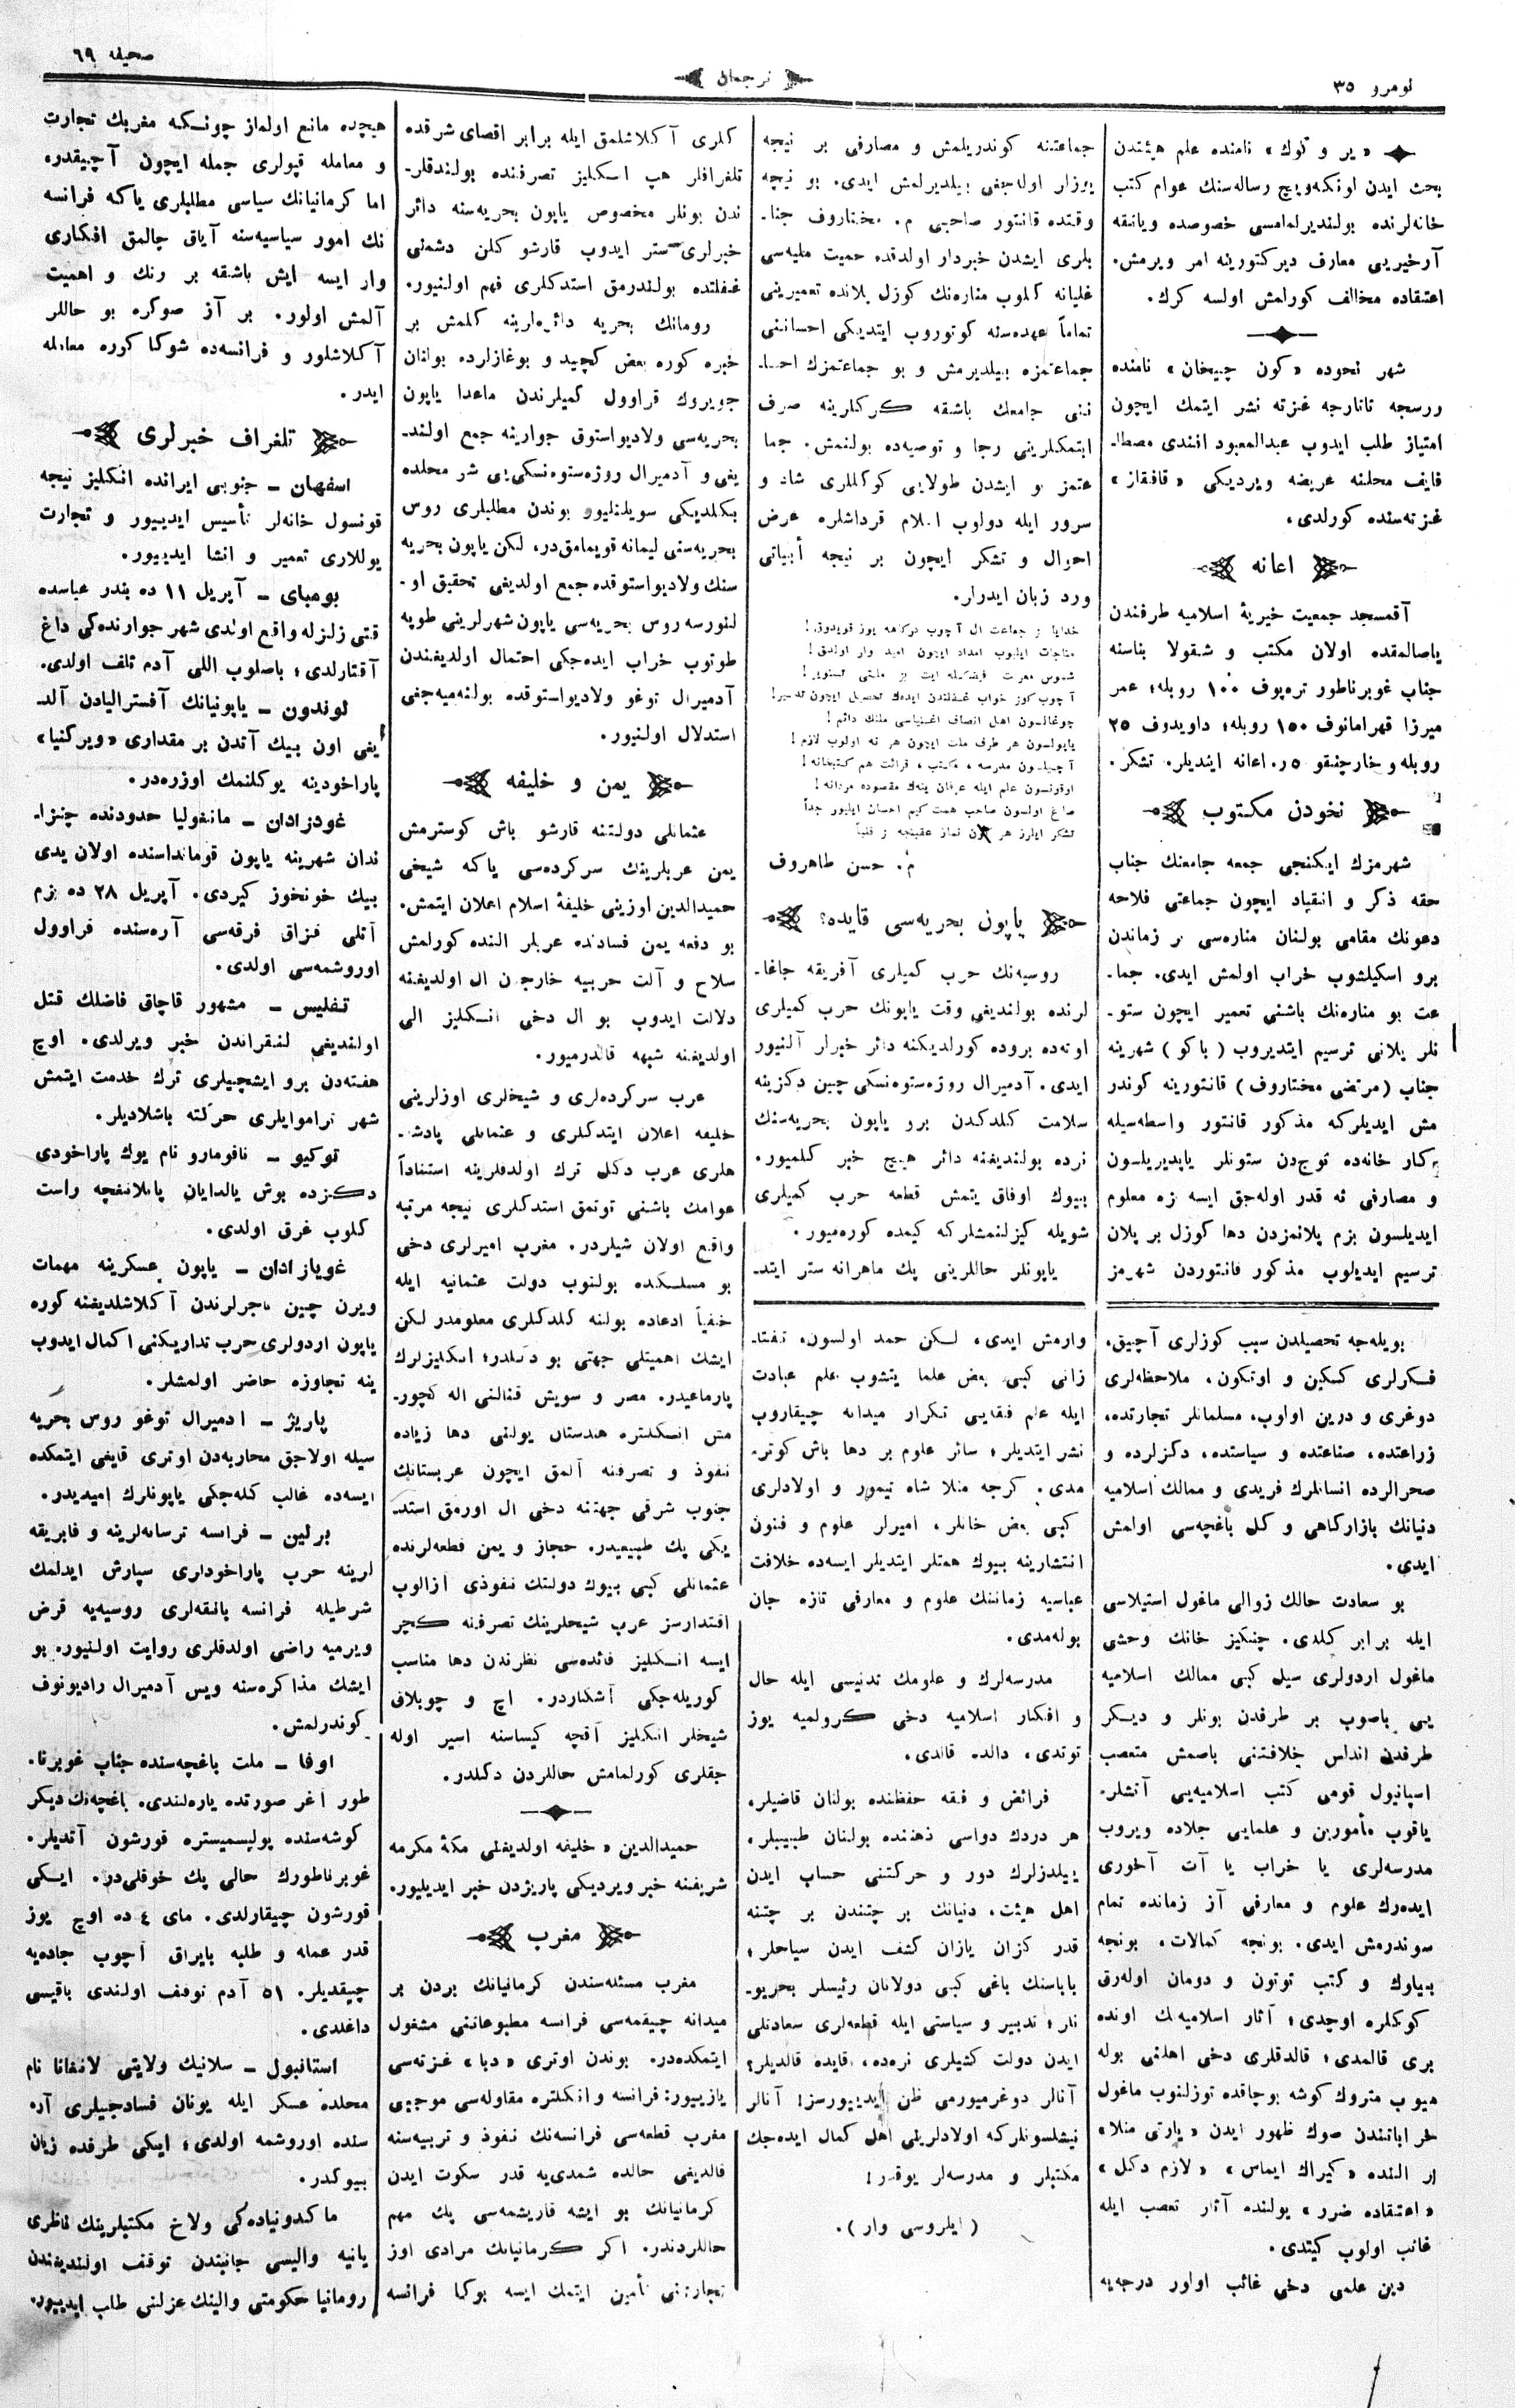 نومرو ٣٥
ترجمان
صحیفه ٦٩
«یر و توك» نامنده علم هیئتدن
بحث ایدن اونكه‌ویچ رساله‌سنك عوام كتب
خانه‌لرنده بولندیرلمامسی خصوصده ویاتقه
آرخیریی معارف دیركتورینه امر ویرمش.
اعتقاده مخالف كورلمش اولسه كرك.
شهر نخوده «كون چیخان» نامنده
ورسجه تاتارجه غزته نشر ایتمك ایچون
امتیاز طلب ایدوب عبدالمعبود افندی مصطا-
فایف محلنه عریضه ویردیكی «قافقاز»
غزته‌سنده كورلدی.
اعانه
آقمسجد جمعیت خیریهٔ اسلامیه طرفندن
یاصالمقده اولان مكتب و شقولا بناسنه
جناب غوبرناطور تره‌پوف ١٠٠ روبله؛ عمر
میرزا قهرامانوف ١٥٠ روبله؛ داویدوف ٢٥
روبله و خارچنقو ٥ ر. اعانه ایتدیلر. تشكر.
نخودن مكتوب
شهرمزك ایكنجی جمعه جامعنك جناب
حقه ذكر و انقیاد ایچون جماعتی فلاحه
دعونك مقامی بولنان مناره‌سی بر زماندن
برو اسكیلشوب خراب اولمش ایدی. جما-
عت بو مناره‌نك باشنی تعمیر ایچون ستو-
نلر پلانی ترسیم ایتدیروب (باكو) شهرینه
جناب (مرتضی مختاروف) قانتورینه كوندر
مش ایدیلركه مذكور قانتور واسطه‌سیله
كار خانه‌ده توج‌دن ستونلر یاپدیریلسون
و مصارفی نه قدر اوله‌جق ایسه بزه معلوم
ایدیلسون بزم پلانمزدن دها كوزل بر پلان
ترسیم ایدیلوب مذكور قانتوردن شهرمز
جماعتنه كوندریلمش و مصارفی بر نیجه
یوزلر اوله‌جغی بیلدیرلمش ایدی. بو نیچه
وقتده قانتور صاحبی م. مختاروف جنا-
بلری ایشدن خبردار اولدقده حمیت ملیه‌سی
غلیانه كلوب مناره‌نك كوزل پلانده تعمیرینی
تماماً عهده‌سنه كوتوروب ایتدیكی احساننی
جماعتمزه بیلدیرمش و بو جماعتمزك احسا-
ننی جامعك باشقه كركلرینه صرف
ایتمكلرینی رجا و توصیه‌ده بولنمش. جما
عتمز بو ایشدن طولایی كوكللری شاد و
سرور ایله دولوب اسلام قرداشلره عرض
احوال و تشكر ایچون بر نیجه أبیاتی
ورد زبان ایدرلر.
خدایا بو جماعت ال آچوب دركاهه یوز قویدوق!
مناجات ایلیوب امداد ایچون امید وار اولدق!
شموس معرفت فیضكیله ایت بو ملتی تنویر!
آچوب كوز خواب غفلتدن ایده‌ك تحصیل ایچون تدبیر!
چوغالسون اهل انصاف اغنیاسی ملتك دائم!
یاپولسون هر طرف ملت ایچون هر نه اولوب لازم!
آچیلسون مدرسه، مكتب، قرائت هم كتبخانه!
اوقونسون علم ایله عرفان یتك مقصوده مردانه!
صاغ اولسون صاحب همت كیم احسان ایلیور جداً
تشكر ایلرز هر آن نماز عقبنجه و قلباً
م. حسن طاهروف
یاپون بحریه‌سی قایده؟
روسیه‌نك حرب كمیلری آفریقه جاغا-
لرنده بولندیغی وقت یاپونك حرب كمیلری
اوته‌ده بروده كورلدیكنه دائر خبرلر آلنیور
ایدی. آدمیرال روژه‌ستوه‌نسكی چین دكزینه
سلامت كلدكدن برو یاپون بحریه‌سنك
نرده بولندیغنه دائر هیچ خبر كلمیور.
بیوك اوفاق یتمش قطعه حرب كمیلری
شویله كیزلنمشلركه كیمده كوره‌میور.
یاپونلر حاللرینی پك ماهرانه ستر ایتد-
كلری آكلاشلمق ایله برابر اقصای شرقده
تلغرافلر هپ انكلیز تصرفنده بولندقلر-
ندن بونلر مخصوص یاپون بحریه‌سنه دائر
خبرلری ستر ایدوب قارشو كلن دشمنی
غفلتده بولندرمق استدكلری فهم اولنیور.
رومانك بحریه دائره‌لرینه كلمش بر
خبره كوره بعض كچید و بوغازلرده بولنان
جویروك قراوول كمیلرندن ماعدا یاپون
بحریه‌سی ولادیواستوق جوارینه جمع اولند-
یغی و آدمیرال روژه‌ستوه‌نسكی‌یی شو محلده
بكلدیكی سویلنلیور بوندن مطلبلری روس
بحریه‌سنی لیمانه قویمامق‌در. لكن یاپون بحریه
سنك ولادیواستوقده جمع اولدیغی تحقیق او-
لنورسه روس بحریه‌سی یاپون شهرلرینی طوپه
طوتوب خراب ایده‌جكی احتمال اولدیغندن
آدمیرال توغو ولادیواستوقده بولنه‌میه‌جغی
استدلال اولنیور.
یمن و خلیفه
عثمانلی دولتنه قارشو باش كوسترمش
یمن عربلرینك سركرده‌سی یاكه شیخی
حمیدالدین اوزینی خلیفهٔ اسلام اعلان ایتمش.
بو دفعه یمن فسادنده عربلر الننده كورلمش
سلاح و آلت حربیه خارجدن ال اولدیغنه
دلالت ایدوب بو ال دخی انكلیز الی
اولدیغنه شبهه قالدرمیور.
عرب سركرده‌لری و شیخلری اوزلرینی
خلیفه اعلان ایتدكلری و عثمانلی پادشا-
هلری عرب دكل ترك اولدقلرینه استناداً
عوامك باشنی توتمق استدكلری نیجه مرتبه
واقع اولان شیلردر. مغرب امیرلری دخی
بو مسلكده بولنوب دولت عثمانیه ایله
خفیاً ادعاده بولنه كلدكلری معلومدر لكن
ایشك اهمیتلی جهتی بو دكلدر؛ انكلیزلرك
پارماغیدر. مصر و سویش قنالنی اله كچور-
مش انكلتره هندستان یولنی دها زیاده
نفوذ و تصرفنه آلمق ایچون عربستانك
جنوب شرقی جهتنه دخی ال اورمق استد-
یكی پك طبیعیدر. حجاز و یمن قطعه‌لرنده
عثمانلی كبی بیوك دولتك نفوذی ازالوب
اقتدارسز عرب شیخلرینك تصرفنه كچر
ایسه انكلیز فائده‌سی نظرندن دها مناسب
كوریله‌جكی آشكاردر. اچ و چوبلاق
شیخلر انكلیز آقچه كیساسنه اسیر اوله
جقلری كورلمامش حاللردن دكلدر.
حمیدالدین «خلیفه اولدیغنی مكهٔ مكرمه
شریفنه خبر ویردیكی پاریژدن خبر ایدیلیور.
مغرب
مغرب مسئله‌سندن كرمانیانك بردن بر
میدانه چیقمه‌سی فرانسه مطبوعاتنی مشغول
ایتمكده‌در. بوندن اوتری «دبا» غزته‌سی
یازییور: فرانسه و انكلتره مقاوله‌سی موجبی
مغرب قطعه‌سی فرانسه‌نك نفوذ و تربیه‌سنه
قالدیغی حالده شمدی‌یه قدر سكوت ایدن
كرمانیانك بو ایشه قاریشمه‌سی پك مهم
حاللردندر. اكر كرمانیانك مرادی اوز
تجارتنی تأمین ایتمك ایسه بوكا فرانسه
هیچده مانع اولماز چونكه مغربك تجارت
و معامله قپولری جمله ایچون آچیقدر.
اما كرمانیانك سیاسی مطلبلری یاكه فرانسه
نك امور سیاسیه‌سنه آیاق چالمق افكاری
وار ایسه ایش باشقه بر رنك و اهمیت
آلمش اولور. بر آز صوكره بو حاللر
آكلاشلور و فرانسه‌ده شوكا كوره معامله
ایدر.
تلغراف خبرلری
اسفهان - جنوبی ایرانده انكلیز نیجه
قونسول خانه‌لر تأسیس ایدییور و تجارت
یوللاری تعمیر و انشا ایدییور.
بومبای - آپریل ١١ ده بندر عباسده
قتی زلزله واقع اولدی شهر جوارنده‌كی داغ
آقتارلدی؛ باصلوب اللی آدم تلف اولدی.
لوندون - یاپونیانك آفسترالیادن آلد-
یغی اون بیك آتدن بر مقداری «ویركنیا»
پاراخودینه یوكلنمك اوزره‌در.
غودزادان - مانغولیا حدودنده چنزا-
ندان شهرینه یاپون قوماندا‌سنده اولان یدی
بیك خونخوز كیردی. آپریل ٢٨ ده بزم
آتلی قزاق فرقه‌سی آره‌سنده قراوول
اوروشمه‌سی اولدی.
تفلیس - مشهور قاچاق فاضلك قتل
اولندیغی لنقراندن خبر ویرلدی. اوچ
هفته‌دن برو ایشچیلری ترك خدمت ایتمش
شهر تراموایلری حركته باشلادیلر.
توكیو - نافومارو نام یوك پاراخودی
دكزده بوش یالدایان پاتلانغچه راست
كلوب غرق اولدی.
غویازادان - یاپون عسكرینه مهمات
ویرن چین تاجرلرندن آكلاشلدیغنه كوره
یاپون اردولری حرب تداریكنی اكمال ایدوب
ینه تجاوزه حاضر اولمشلر.
پاریژ - ادمیرال توغو روس بحریه
سیله اولاجق محاربه‌دن اوتری قایغی ایتمكده
ایسه‌ده غالب كله‌جكی یاپونلرك امیدیدر.
برلین - فرانسه ترسانه‌لرینه و فابریقه
لرینه حرب پاراخودلری سپارش ایدلمك
شرطیله فرانسه بانقه‌لری روسیه‌یه قرض
ویرمیه راضی اولدقلری روایت اولنیور. بو
ایشك مذاكره‌سنه ویس آدمیرال رادیونوف
كوندرلمش.
اوفا - ملت باغچه‌سنده جناب غوبرنا-
طور اغر صورتده یاره‌لندی. باغچه‌نك دیكر
كوشه‌سنده پولیسمیستره قورشون آتدیلر.
غوبرناطورك حالی پك خوفلی‌در. ایكی
قورشون چیقارلدی. مای ٤ ده اوچ یوز
قدر عمله و طلبه بایراق آچوب جاده‌یه
چیقدیلر. ٥١ آدم توقف اولندی باقیسی
داغلدی.
استانبول - سلانیك ولایتی لانغانا نام
محلده عسكر ایله یونان فسادجیلری آره
سنده اوروشمه اولدی؛ ایكی طرفده زیان
بیوكدر.
ماكدونیاده‌كی ولاخ مكتبلرینك ناظری
یانیه والیسی جانبندن توقف اولندیغندن
رومانیا حكومتی والینك عزلنی طلب ایدییور.
بویله‌جه تحصیلدن سبب كوزلری آچیق،
فكرلری كسكین و اوتكون، ملاحظه‌لری
دوغری و درین اولوب، مسلمانلر تجارتده،
زراعتده، صناعتده و سیاستده، دكزلرده و
صحرالرده انسانلرك فریدی و ممالك اسلامیه
دنیانك بازاركاهی و كل باغچه‌سی اولمش
ایدی.
بو سعادت حالك زوالی ماغول استیلاسی
ایله برابر كلدی. چنكیز خانك وحشی
ماغول اردولری سیل كبی ممالك اسلامیه
یی باصوب بر طرفدن بونلر و دیكر
طرفدن انداس خلافتنی باصمش متعصب
اسپانیول قومی كتب اسلامیه‌یی آتشلر-
یاقوب مأمورین و علمایی جلاده ویروب
مدرسه‌لری یا خراب یا آت آخوری
ایده‌رك علوم و معارفی آز زمانده تمام
سوندرمش ایدی. بونجه كمالات، بونجه
بیلوك و كتب توتون و دومان اوله‌رق
كوكلره اوچدی؛ آثار اسلامیه‌نك اونده
بری قالمدی؛ قالدقلری دخی اهلنی بوله
میوب متروك كوشه بوجاقده توزلنوب ماغول
خراباتندن صوك ظهور ایدن «یارتی منلا»
لر النده «كیراك ایماس» «لازم دكل»
«اعتقاده ضرر» یولنده آثار تعصب ایله
غائب اولوب كیتدی.
دین علمی دخی غائب اولور درجه‌یه
وارمش ایدی، لكن حمد اولسون، تفتا-
زانی كبی بعض علما یتشوب علم عبادت
ایله علم فقایی تكرار میدانه چیقاروب
نشر ایتدیلر؛ سائر علوم بر دها باش كوتر-
مدی. كرچه منلا شاه تیمور و اولادلری
كبی بعض خانلر، امیرلر علوم و فنون
انتشارینه بیوك همتلر ایتدیلر ایسه‌ده خلافت
عباسیه زماننك علوم و معارفی تازه جان
بوله‌مدی.
مدرسه‌لرك و علومك تدنیسی ایله حال
و افكار اسلامیه دخی كرولمیه یوز
توتدی، دالده قالدی.
فرائض و فقه حفظنده بولنان قاضیلر،
هر دردك دواسی ذهننده بولنان طبیبلر،
ییلدزلرك دور و حركتنی حساب ایدن
اهل هیئت، دنیانك بر چتندن بر چتنه
قدر كزان یازان كشف ایدن سیاحلر؛
باباسنك باغی كبی دولانان رئیسلر بحریو-
نلر؛ تدبیر و سیاستی ایله قطعه‌لری سعادتلی
ایدن دولت كشیلری نره‌ده، قایده قالدیلر؟
آنالر دوغرمیورمی ظن ایدییورسز! آنالر
نیشلسونلركه اولادلرینی اهل كمال ایده‌جك
مكتبلر و مدرسه‌لر یوقدر!
(ایلروسی وار).